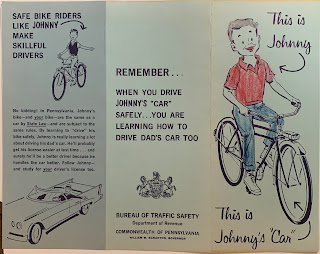 SAFE BIKE RIDERS
LIKE JOHNNY
MAKE
SKILLFUL
DRIVERS
No kidding! In Pennsylvania, Johnny's
bike—and your bike—are the same as a
car by State Law—and are subject to the
same rules. By learning to "drive" his
bike safely, Johnny is really learning a lot
about driving his dad's car. He'll probably
get his license easier at test time . . . and
surely he'll be a better driver because he
handles the car better. Follow Johnny—
and study for your driver's license too.
REMEMBER . . .
WHEN YOU DRIVE
JOHNNY'S "CAR"
SAFELY...YOU ARE
LEARNING HOW TO
DRIVE DAD'S CAR TOO
BUREAU OF TRAFFIC SAFETY
Department of Revenue
COMMONWEALTH OF PENNSYLVANIA
WILLIAM W. SCRANTON, GOVERNOR
This is
Johnny
This is
Johnny's "Car"